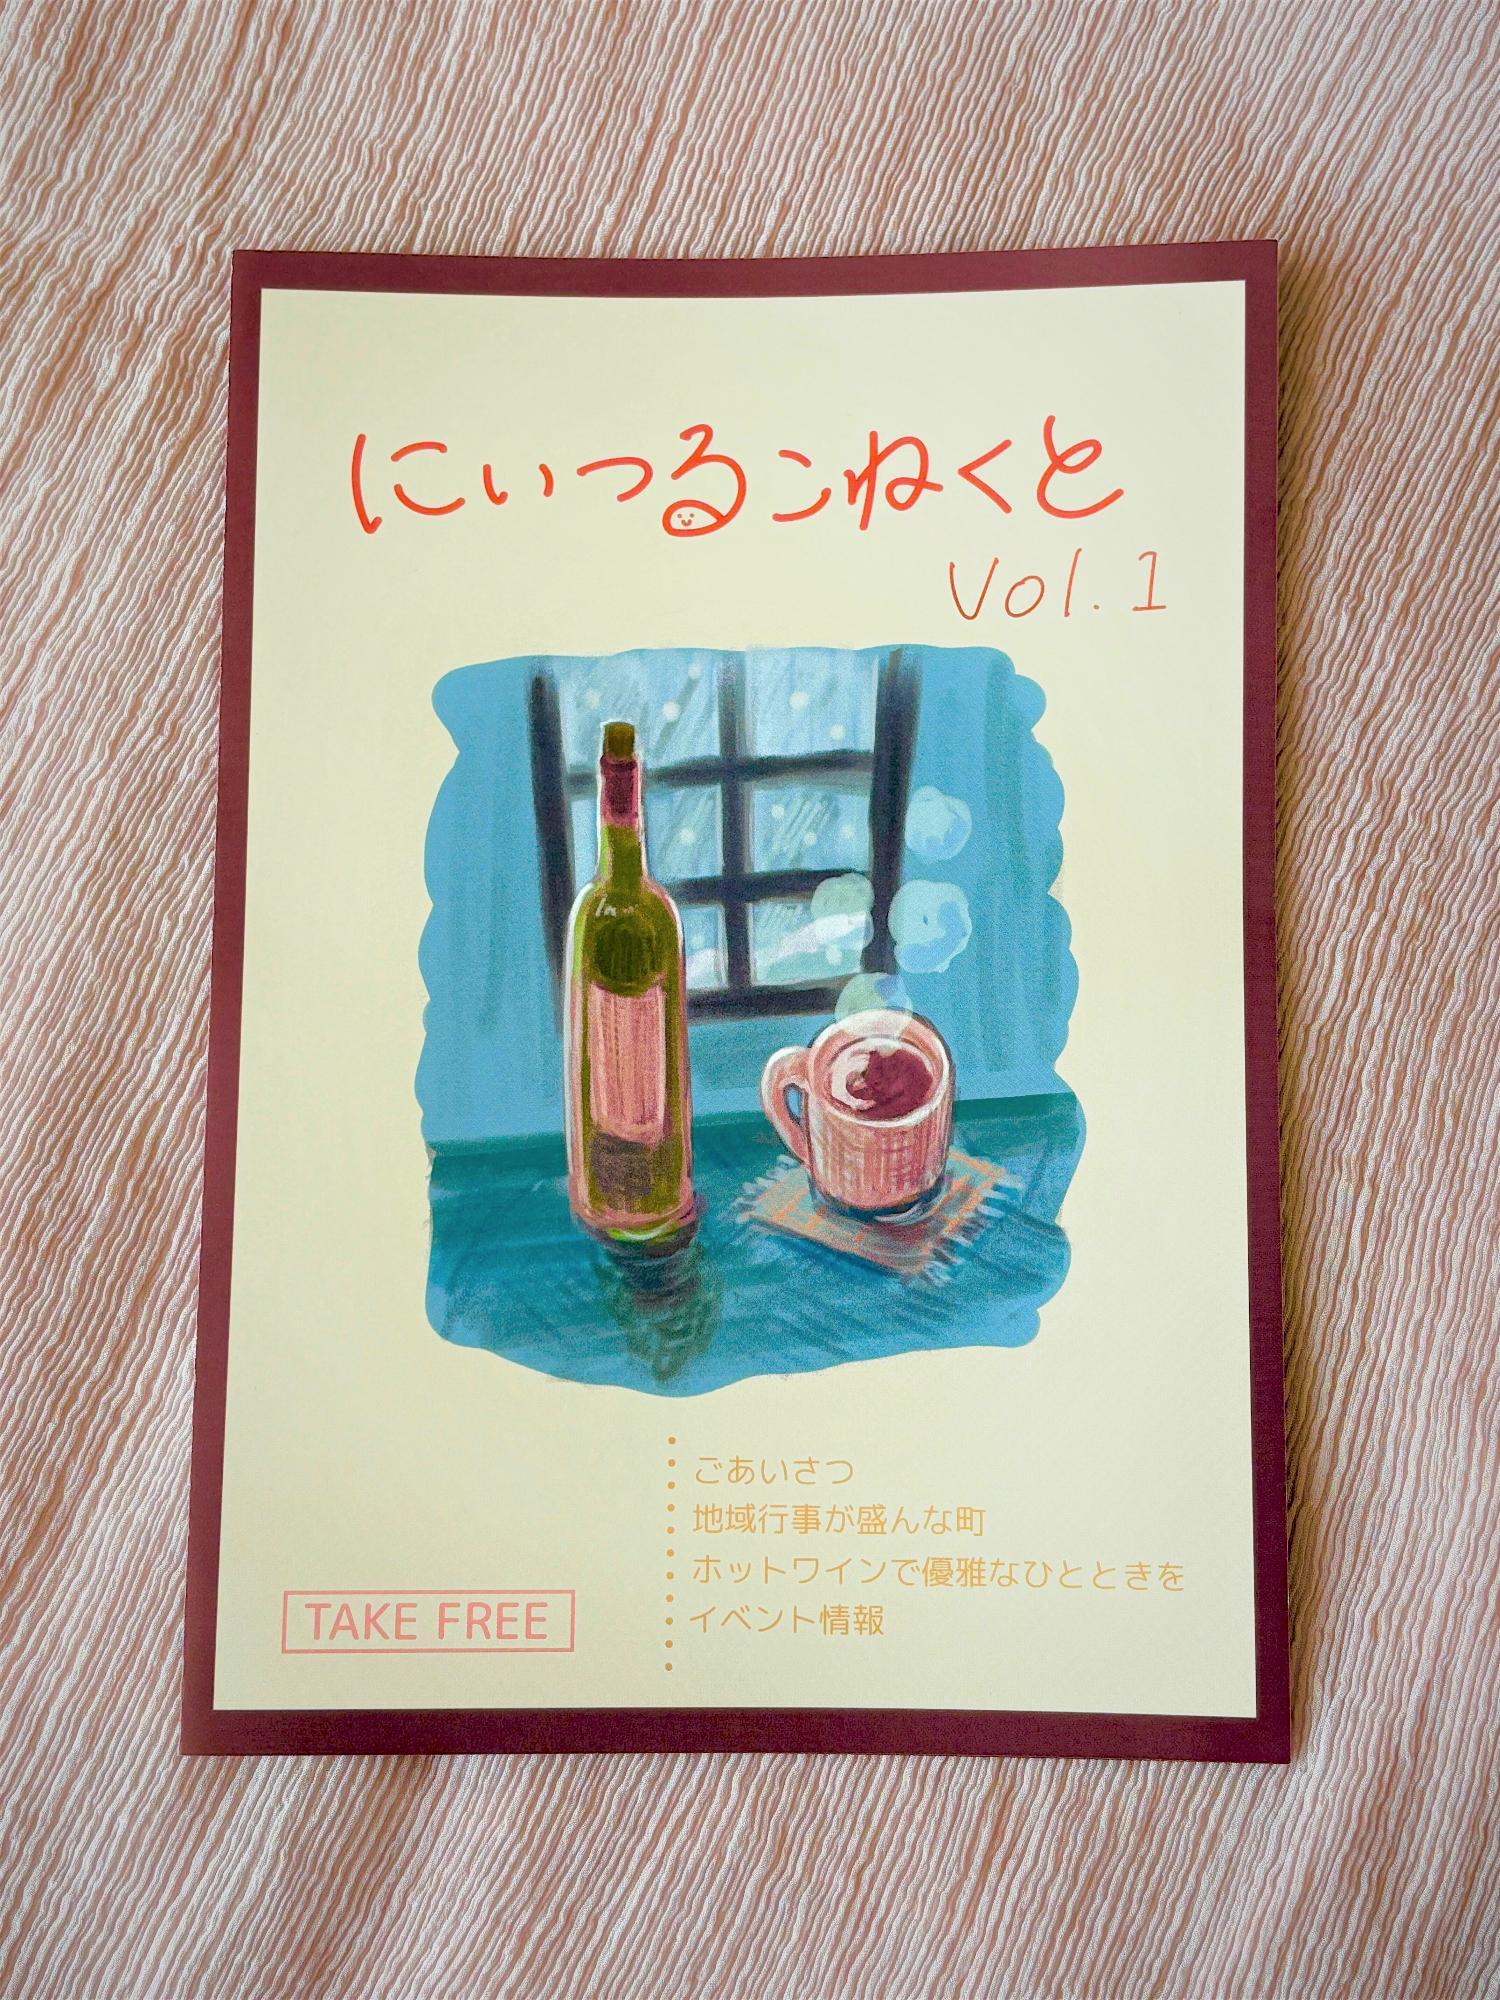 にぃつるこねくと
Vol.1
ごあいさつ
地域行事が盛んな町
ホットワインで優雅なひとときを
イベント情報
TAKE FREE